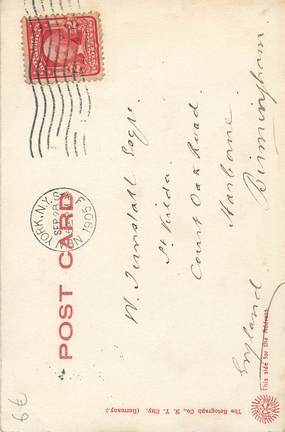 NEW YORK, N.Y. STA. F
SEP 28
1905
POST CARD
W. Tunstall Esqre.
St Kilda.
Court Oak Road.
Harborne.
Birmingham.
England
This side for the Address.
The Rotograph Co., N. Y. City. (Germany.)